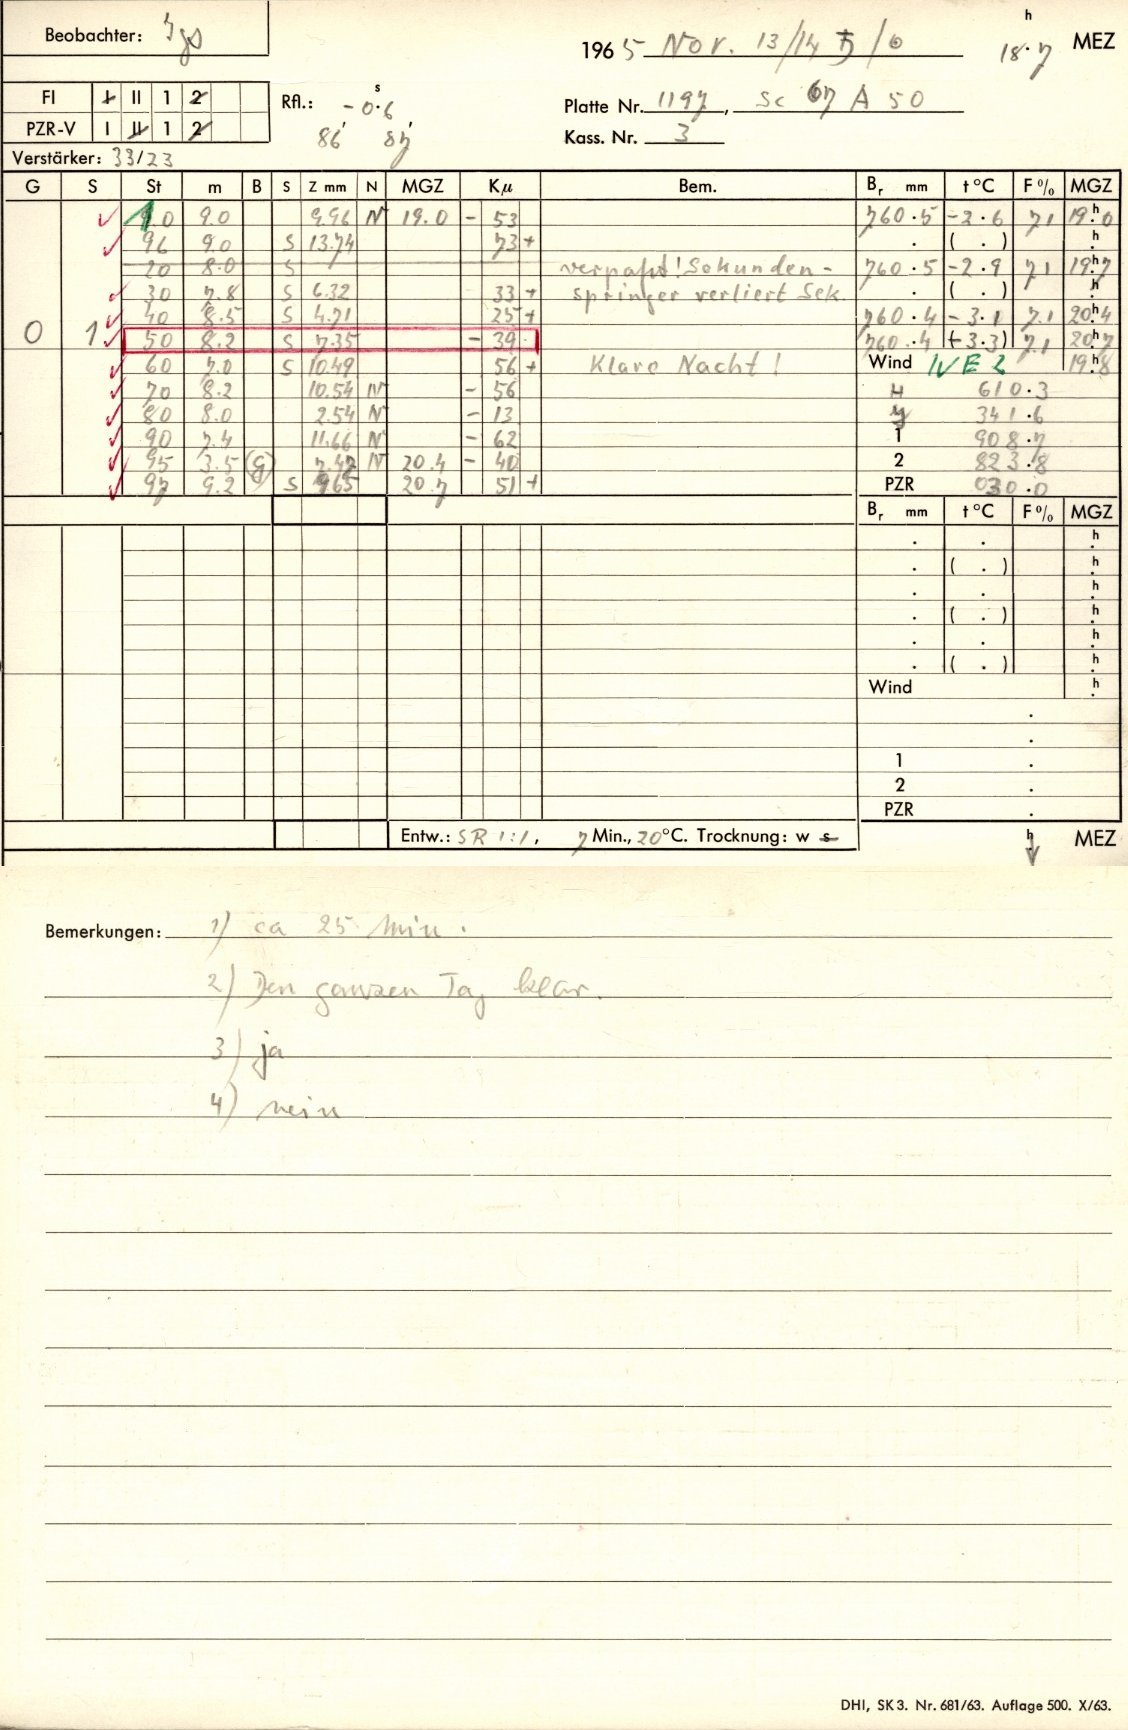 Beobachter: Jgs
1965 Nov. 13/14 ♄/☉ 18h.7 MEZ
FI I II 1 2
PZR-V I II 1 2
Rfl.: -0s.6
86' 87'
Platte Nr. 1197, Sc 67 A 50
Kass. Nr. 3
Verstärker: 33/23
G S St m B S Z mm N MGZ Kμ Bem. Br mm t °C F % MGZ
10 9.0 9.96 N 19.0 - 53 760.5 -2.6 71 19h.0
96 9.0 S 13.74 73 + . ( . ) h.
20 8.0 S verpaßt! Sekunden- 760.5 -2.9 71 19h.7
30 7.8 S 6.32 33 + springer verliert Sek. . ( . ) h.
40 8.5 S 4.71 25 + 760.4 -3.1 71 20h.4
0 1 50 8.2 S 7.35 - 39 760.4 (-3.3) 71 20h.7
60 7.0 S 10.49 56 + Klare Nacht! Wind NE 2 19h.8
70 8.2 10.54 N - 56 H 610.3
80 8.0 2.54 N - 13 y 341.6
90 7.4 11.66 N - 62 1 908.7
95 3.5 (g) 7.47 N 20.4 - 40 2 823.8
97 9.2 S 9.65 20.7 51 + PZR 030.0
Br mm t °C F % MGZ
. . h.
. ( . ) h.
. . h.
. ( . ) h.
. . h.
. ( . ) h.
Wind h.
.
.
1 .
2 .
PZR .
Entw.: SR 1:1, 7 Min., 20 °C. Trocknung: w s h MEZ
Bemerkungen: 1) ca 25 Min.
2) Den ganzen Tag klar.
3) ja
4) nein
DHI, SK 3. Nr. 681/63. Auflage 500. X/63.